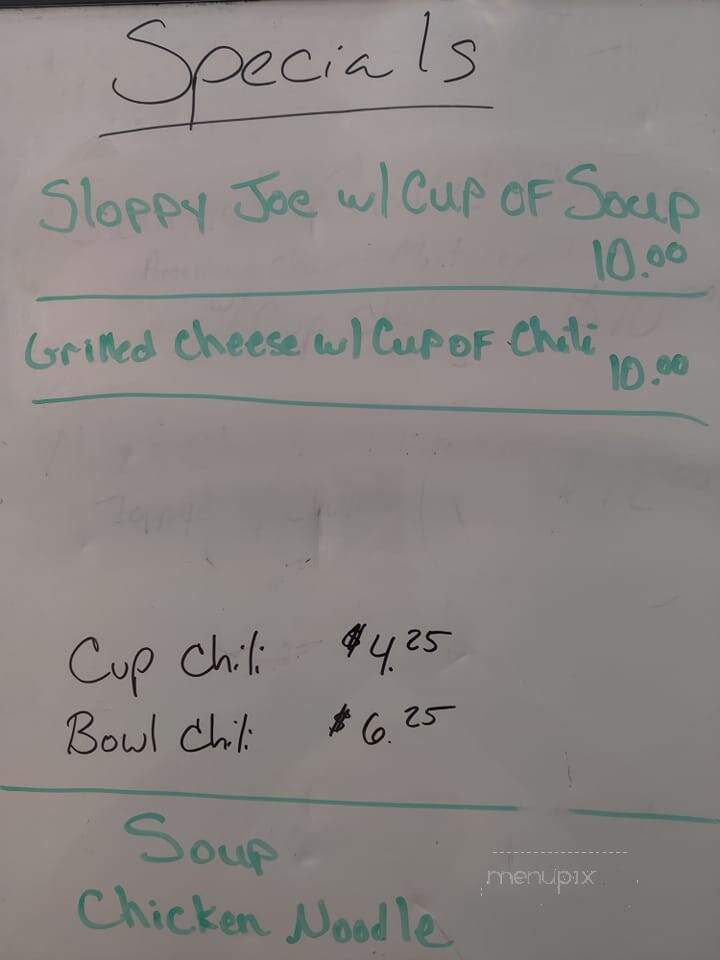 Specials
Sloppy Joe w/ Cup OF Soup
10.00
Grilled Cheese w/ Cup OF Chili
10.00
Cup Chili $4.25
Bowl Chili $6.25
Soup
menupix
Chicken Noodle